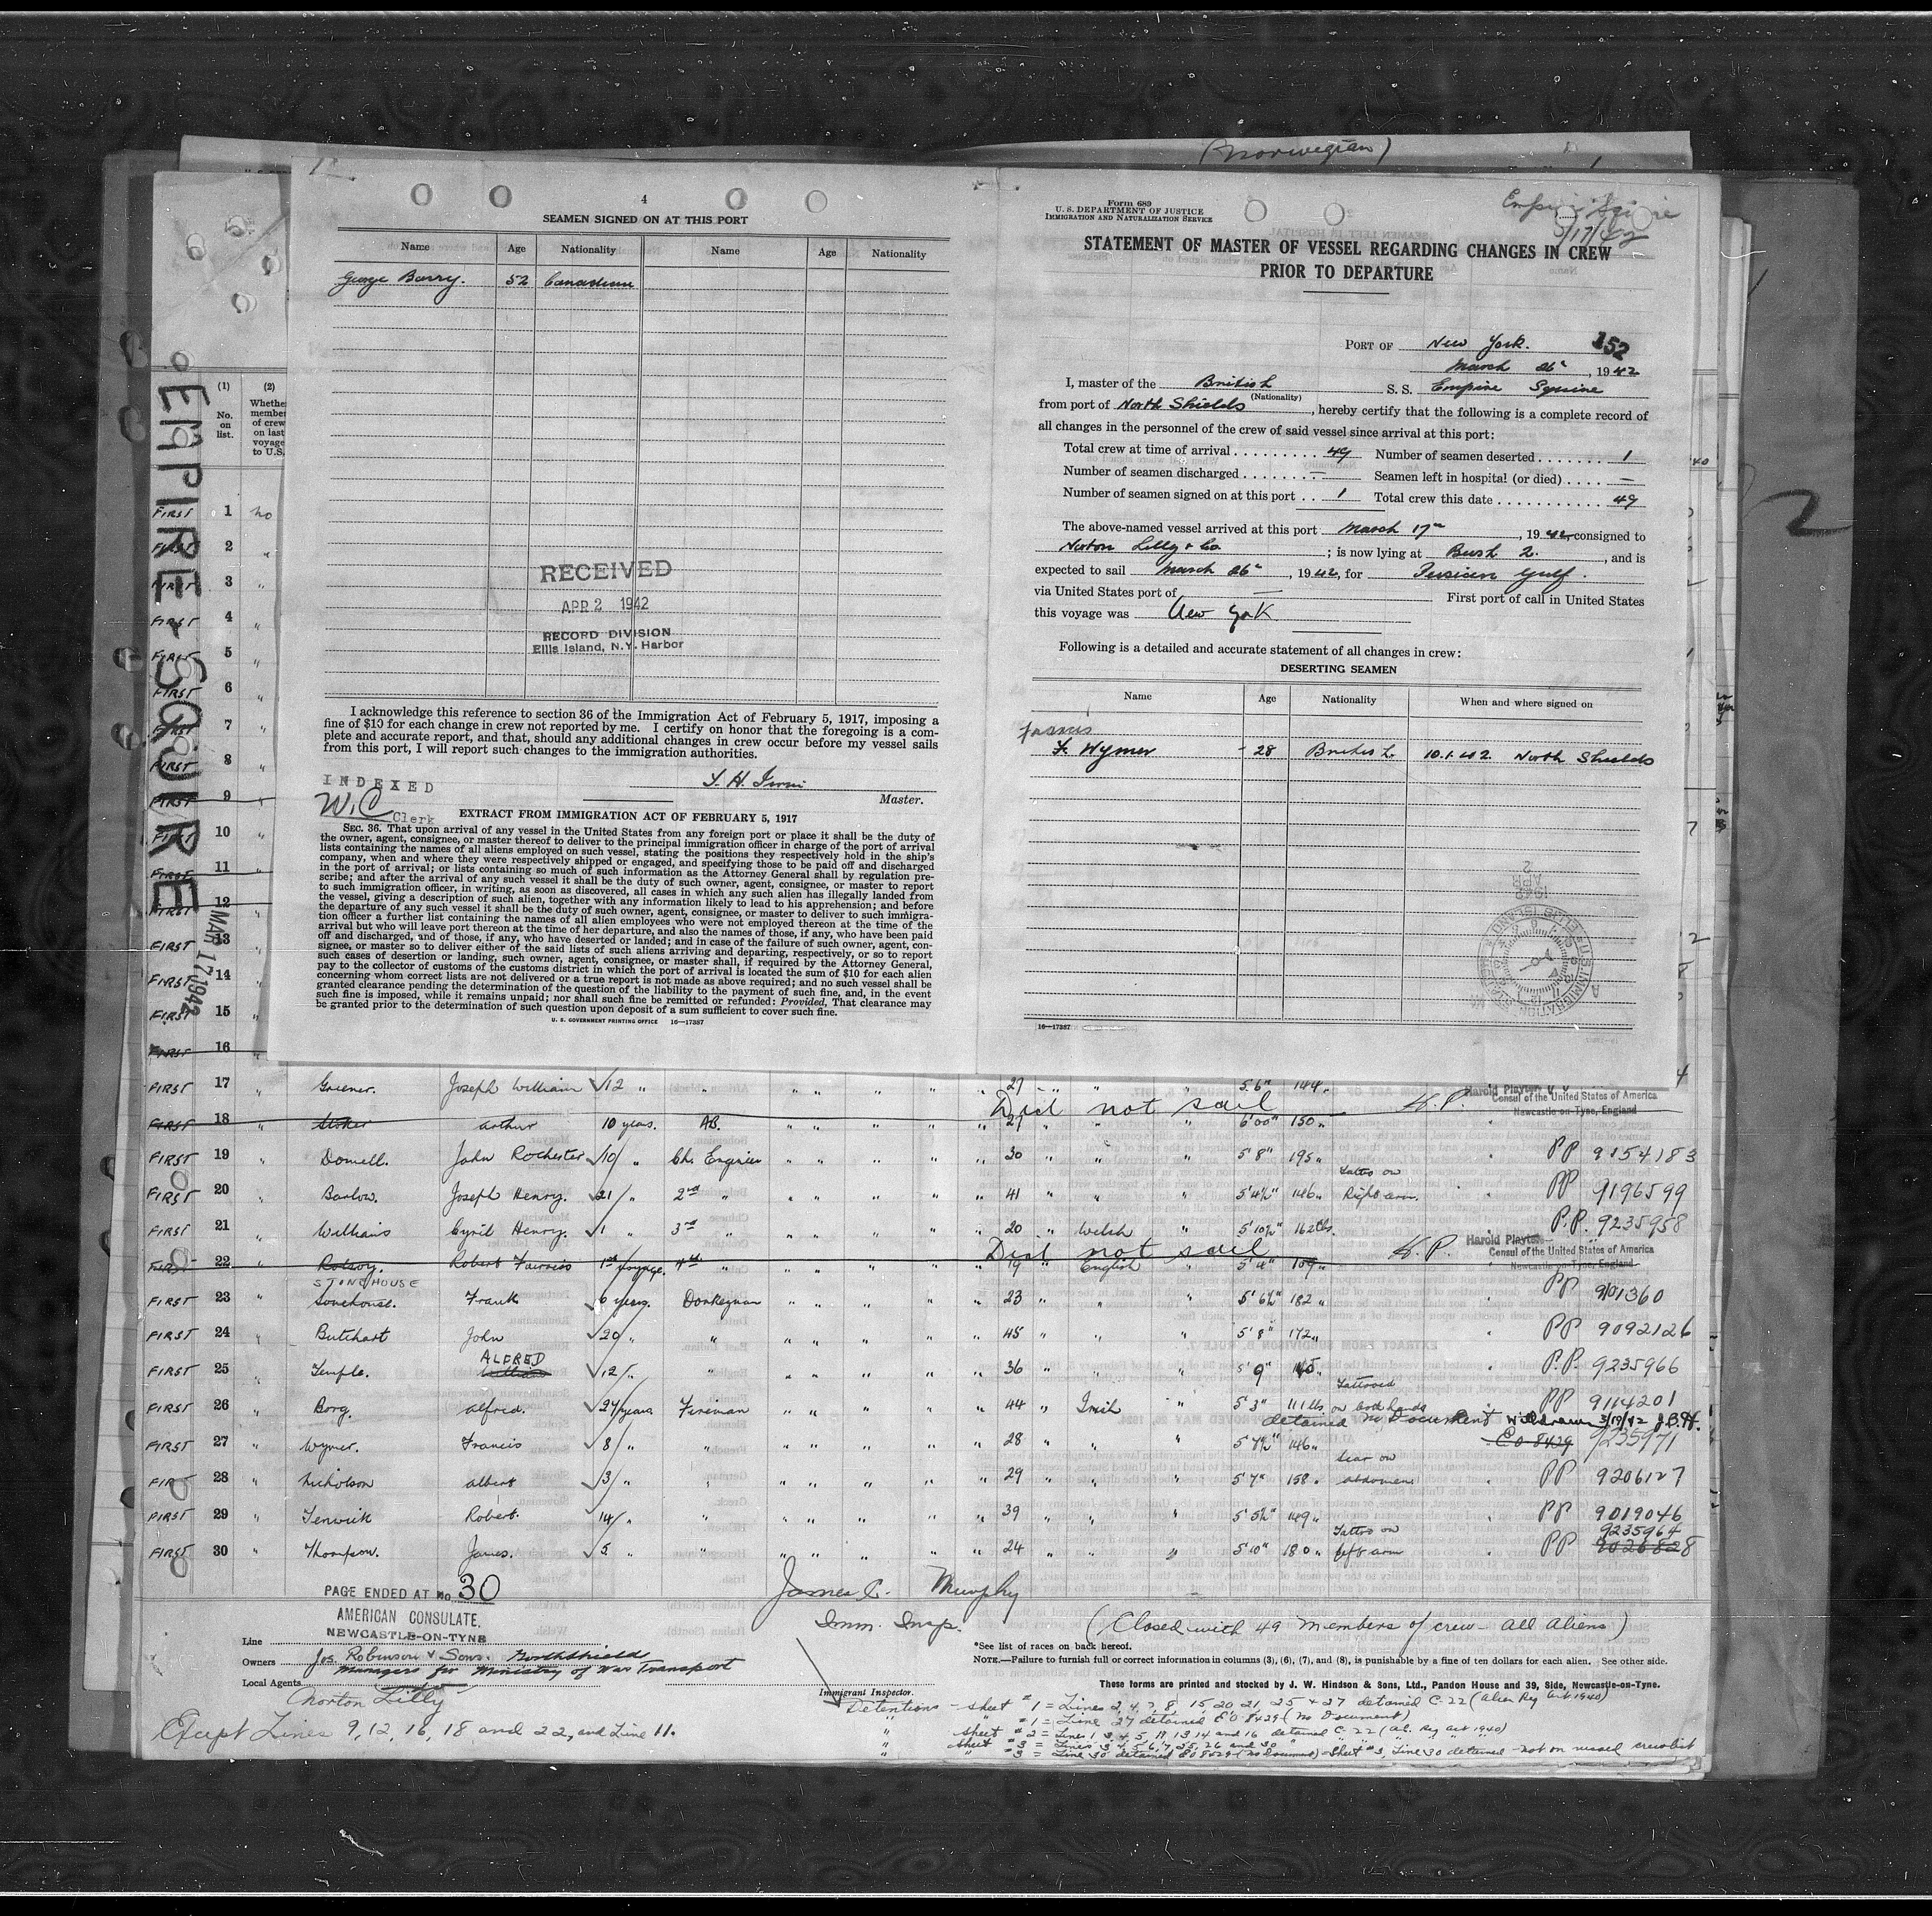 (Norwegian)
4
SEAMEN SIGNED ON AT THIS PORT
Name Age Nationality Name Age Nationality
George Barry. 52 Canadian
RECEIVED
APR 2 1942
RECORD DIVISION
Ellis Island, N.Y. Harbor
I acknowledge this reference to section 36 of the Immigration Act of February 5, 1917, imposing a
fine of $10 for each change in crew not reported by me. I certify on honor that the foregoing is a com-
plete and accurate report, and that, should any additional changes in crew occur before my vessel sails
from this port, I will report such changes to the immigration authorities.
INDEXED
W.C Clerk
Master.
EXTRACT FROM IMMIGRATION ACT OF FEBRUARY 5, 1917
SEC. 36. That upon arrival of any vessel in the United States from any foreign port or place it shall be the duty of
the owner, agent, consignee, or master thereof to deliver to the principal immigration officer in charge of the port of arrival
lists containing the names of all aliens employed on such vessel, stating the positions they respectively hold in the ship's
company, when and where they were respectively shipped or engaged, and specifying those to be paid off and discharged
in the port of arrival; or lists containing so much of such information as the Attorney General shall by regulation pre-
scribe; and after the arrival of any such vessel it shall be the duty of such owner, agent, consignee, or master to report
to such immigration officer, in writing, as soon as discovered, all cases in which any such alien has illegally landed from
the vessel, giving a description of such alien, together with any information likely to lead to his apprehension; and before
the departure of any such vessel it shall be the duty of such owner, agent, consignee, or master to deliver to such immigra-
tion officer a further list containing the names of all alien employees who were not employed thereon at the time of the
arrival but who will leave port thereon at the time of her departure, and also the names of those, if any, who have been paid
off and discharged, and of those, if any, who have deserted or landed; and in case of the failure of such owner, agent, con-
signee, or master so to deliver either of the said lists of such aliens arriving and departing, respectively, or so to report
such cases of desertion or landing, such owner, agent, consignee, or master shall, if required by the Attorney General,
pay to the collector of customs of the customs district in which the port of arrival is located the sum of $10 for each alien
concerning whom correct lists are not delivered or a true report is not made as above required; and no such vessel shall be
granted clearance pending the determination of the question of the liability to the payment of such fine, and, in the event
such fine is imposed, while it remains unpaid; nor shall such fine be remitted or refunded: Provided, That clearance may
be granted prior to the determination of such question upon deposit of a sum sufficient to cover such fine.
U. S. GOVERNMENT PRINTING OFFICE 16—17387
Form 689
U. S. DEPARTMENT OF JUSTICE
IMMIGRATION AND NATURALIZATION SERVICE
Empire Squire
3/17/42
STATEMENT OF MASTER OF VESSEL REGARDING CHANGES IN CREW
PRIOR TO DEPARTURE
PORT OF New York. 152
March 26", 1942
I, master of the British S. S. Empire Squire
(Nationality)
from port of North Shields, hereby certify that the following is a complete record of
all changes in the personnel of the crew of said vessel since arrival at this port:
Total crew at time of arrival 49 Number of seamen deserted 1
Number of seamen discharged — Seamen left in hospital (or died) —
Number of seamen signed on at this port 1 Total crew this date 49
The above-named vessel arrived at this port March 17", 1942, consigned to
Norton Lilly & Co ; is now lying at Bush 2. , and is
expected to sail March 26", 1942, for Persian Gulf.
via United States port of — First port of call in United States
this voyage was New York.
Following is a detailed and accurate statement of all changes in crew:
DESERTING SEAMEN
Name Age Nationality When and where signed on
Francis
F. Wymer - 28 British. 10.1.42. North Shields
16—17387
EMPIRE SQUIRE
MAR 17 1942
(1) (2)
No. on list. Whether member of crew on last voyage to U.S.
FIRST 1 no
FIRST 2 "
FIRST 3 "
FIRST 4 "
FIRST 5 "
FIRST 6 "
FIRST 7 "
FIRST 8 "
FIRST 9 "
FIRST 10 "
FIRST 11 "
FIRST 12 "
FIRST 13 "
FIRST 14 "
FIRST 15 "
FIRST 16
FIRST 17 " Greener. Joseph William 12 " " 27 " " " 5'6" 144 "
Did not sail H.P. Harold Playter Consul of the United States of America Newcastle-on-Tyne, England
FIRST 18 " Stoker Arthur 10 years. AB. 27 6'00" 150 "
FIRST 19 " Donnell. John Rochester 10 " Ch. Engineer 30 5'8" 195 " PP 9154183
FIRST 20 " Barlow. Joseph Henry. 21 " 2nd " 41 5'4½" 146 " Tattoo on Right arm. PP 9196599
FIRST 21 " Williams Cyril Henry. 1 " 3rd " 20 " Welsh " 5'10½" 162 lbs. P.P. 9235958
Did not sail H.P. Harold Playter Consul of the United States of America Newcastle-on-Tyne, England
FIRST 22 " Robert 1st voyage. 4th " 19 " English " 5'4" 109 "
STONEHOUSE
FIRST 23 " Sonehouse. Frank 6 years. Donkeyman 23 " 5'6½" 182 " PP 9101360
FIRST 24 " Butchart John 20 " " 45 " 5'8" 172 " PP 9092126
ALFRED
FIRST 25 " Temple. William 12 " " 36 " 5'9" 145 P.P. 9235966
FIRST 26 " Borg. Alfred. 24 years Fireman 44 " Irish " 5'3" 111 lbs. Tattooed on both hands PP 9114201
detained no Document Withdrawn 3/19/42 J.B.H.
FIRST 27 " Wymer. Francis 8 " " 28 " 5'7½" 146 " EO 8429 9235971
FIRST 28 " Nicholson Albert 3 " " 29 " 5'7" 158 " Scar on abdomen PP 9206127
FIRST 29 " Fenwick Robert. 14 " " 39 " 5'5½" 149 " PP 9019046
FIRST 30 " Thompson. James. 5 " " 24 " 5'10" 180 " Tattoo on left arm PP 9235964 9026828
PAGE ENDED AT No. 30
AMERICAN CONSULATE.
NEWCASTLE-ON-TYNE
James C. Murphy
Imm. Insp.
(Closed with 49 members of crew - All Aliens)
Line
Owners Jos. Robinson & Sons. Northshields
Managers for Ministry of War Transport
Local Agents
Norton Lilly
Immigrant Inspector.
*See list of races on back hereof.
NOTE.—Failure to furnish full or correct information in columns (3), (6), (7), and (8), is punishable by a fine of ten dollars for each alien. See other side.
These forms are printed and stocked by J. W. Hindson & Sons, Ltd., Pandon House and 39, Side, Newcastle-on-Tyne.
Except Lines 9, 12, 16, 18 and 22, and Line 11.
Detentions - sheet #1 = Lines 2, 4, 7, 8, 15, 20, 21, 25 & 27 detained C.22 (Alien Reg Act 1940)
" #1 = Line 27 detained EO 8429 (No Document)
" sheet #2 = Lines 1, 3, 4, 5, 11, 13, 14 and 16 detained C 22 (Al. Reg Act 1940)
" sheet #3 = Lines 3, 4, 5, 6, 7, 25, 26 and 30 " " "
" #3 = Line 30 detained EO 8429 (No Document) - Sheet #3, Line 30 detained - not on visaed crewlist